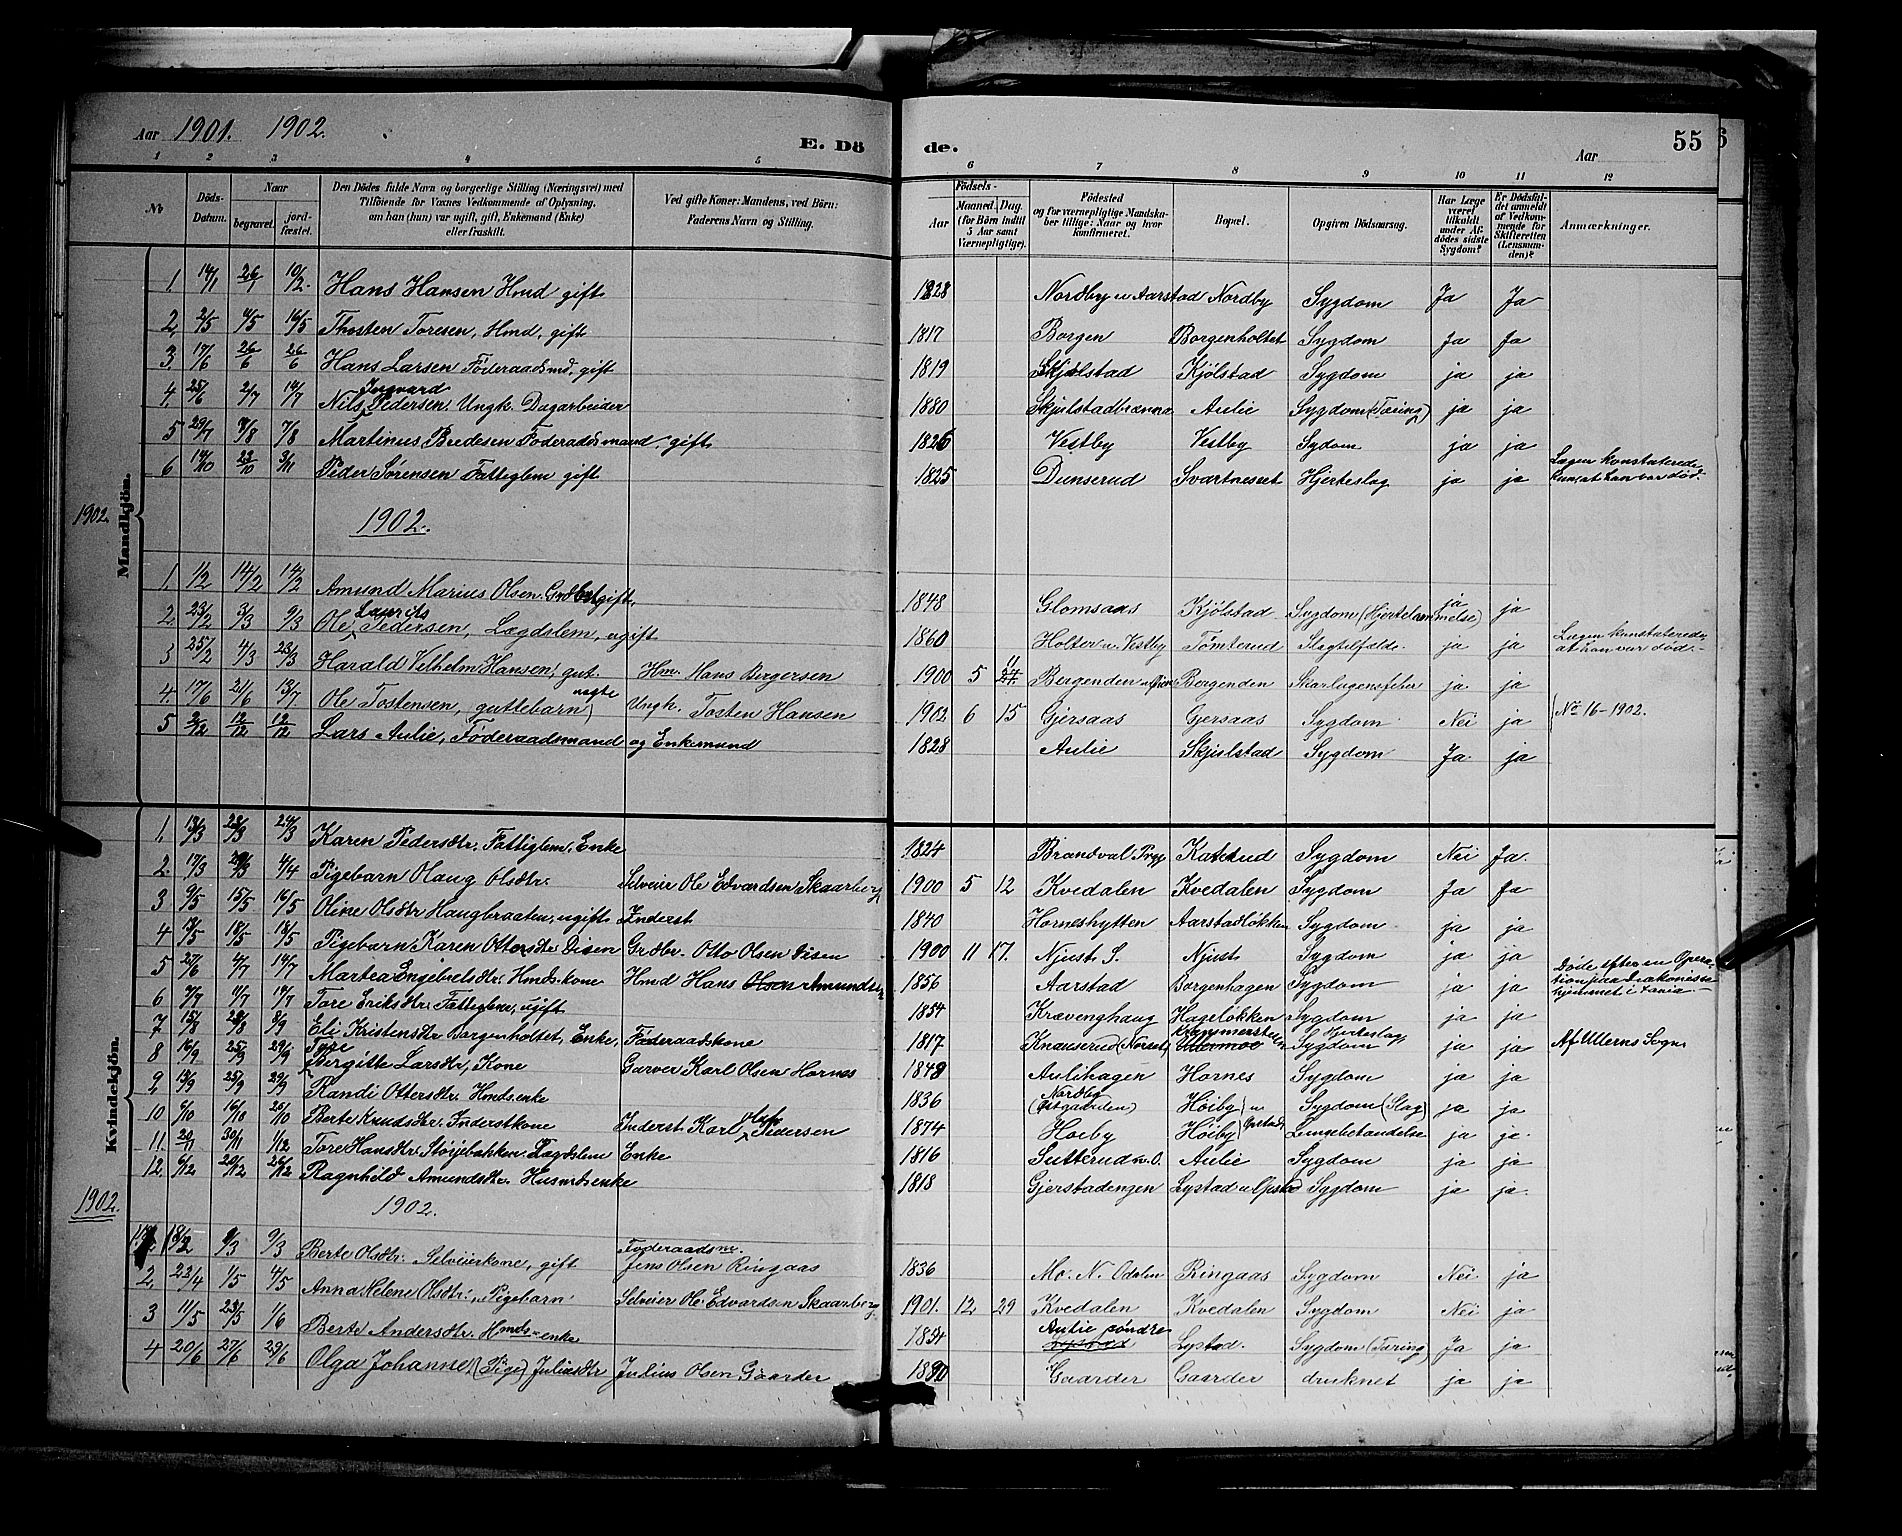 Aar 1901. 1902.
E. Dö de.
Aar 55
1 2 3 4 5 6 7 8 9 10 11 12
No
Döds-Datum.
Naar
begravet.
jord-fæstet.
Den Dödes fulde Navn og borgerlige Stilling (Næringsvei) med
Tilföiende for Voxnes Vedkommende af Oplysning,
om han (hun) var ugift, gift, Enkemand (Enke)
eller fraskilt.
Ved gifte Koner: Mandens, ved Börn:
Faderens Navn og Stilling.
Födsels-
Aar
Maaned. Dag.
(for Börn indtil
5 Aar samt
Værnepligtige).
Födested
og for værnepligtige Mandska-
ber tillige: Naar og hvor
konfirmeret.
Bopæl.
Opgiven Dödsaarsag.
Har Læge
været
tilkaldt
under Af-
dödes sidste
Sygdom?
Er Dödsfal-
det anmeldt
af Vedkom-
mende for
Skifteretten
(Lensman-
den)?
Anmærkninger.
Mandkjön.
1. 14/1 26/1 10/2. Hans Hansen Hmd gift 1828 Nordby u Aarstad Nordby Sygdom Ja Ja
2. 2/5 11/5 16/5 Thosten Toresen, Hmd, gift 1817 Borgen Borgenholtet Sygdom Ja Ja
3. 17/6 26/6 26/6 Hans Larsen Föderaadsmd, gift 1819 Skjölstad Kjölstad Sygdom ja ja
4. 25/6 2/7 14/7 Nils Ingvard Pedersen Ungk. Dagarbeider 1880 Skjulstadbrænna Aulie Sygdom (Tæring) ja ja
5 29/7 7/8 7/8 Martinus Bredesen Föderaadsmand, gift 1826 Vestby Vestby Sydom ja ja
6 14/10 23/10 3/11 Peder Sörensen Fattiglem gift 1825 Dunserud Svartnesset Hjerteslag ja ja Lægen konstaterede kun at han var död.
1902. 1902.
1. 1/2 14/2 14/2 Amund Marius Olsen Grdbr gift, 1848 Glomsaas Kjölstad Sygdom (Hjertelammelse) ja ja
2. 23/2 3/3 9/3 Ole Laurits Pedersen, Lægdslem, ugift 1860 Holter u. Vestby Tömterud Slagtilfælde. ja ja Lægen konstaterede at han var död.
3 25/2 4/3 23/3 Harald Vilhelm Hansen, gut. Hm. Hans Bergersen 1900 5 11 Bergenden Bergenden Skarlagensfeber ja. ja
4. 17/6 21/6 13/7. Ole Tostensen, guttebarn uægte Ungk. Tosten Hansen 1902 6 15 Gjersaas Gjersaas Sygdom Nei ja No 16-1902.
5 2/12 12/12 12/12 Lars Aulie, Föderaadsmand og Enkemand 1828 Aulie Skjulstad Sygdom Ja. ja
Kvindekjön.
1. 13/3 23/3 24/3 Karen Pedersdtr. Fattiglem, Enke 1824 Brandval Prgj. Katerud Sygdom Nei Ja.
2. 17/3 29/3 4/4 Pigebarn Haug Olsdtr. Selveier Ole Edvardsen Skaarberg 1900 5 12 Kvedalen Kvedalen Sygdom Ja Ja
3 9/5 15/5 16/5 Oline Olsdtr Haugbraaten, ugift Inderst 1840 Horneshytten Aarstadlökken Sygdom ja ja
4 13/5 18/5 18/5 Pigebarn Karen Ottersdtr Disen Grdbr. Otto Olsen Disen 1900 11 17. Njust S. Njust Sygdom ja ja
5 27/6 4/7 14/7 Martea Engebretsdtr. Hmds kone Hmd Hans Olsen Amundsen 1856 Aarstad Borgenhagen Sygdom ja ja Döde efter en Operation paa Diakonissehjemmet i
6 7/7 11/7 14/7 Tore Eriksdtr. Fattiglem, ugift 1854 Krævenghaug Hagelökken Sygdom ja ja
7 15/8 28/8 8/9 Eli Kristensdtr Borgenholtet, Enke, Föderaadskone 1817 Knauserud (Norset) Kammerstalen Ullermoe Hjerteslag Sygdom ja ja Af Ullerns Sogn
8 16/9 25/9 29/9 Tyre Birgitte Larsdtr, Kone Garver Karl Olsen Hornes 1848 Aulihagen Hornes Sygdom ja ja
9 13/9 25/9 29/9 Randi Ottersdtr. Hmds enke 1836 Nordby (Östgaarden) Höiby u Sygdom (Slag) ja ja
10 6/10 16/10 25/10 Berte Knudsdtr. Inderstkone Inderst Karl Olaf Pedersen 1874 Hoiby Höiby Opstad Lungebetændelse ja ja.
11. 20/11 30/11 1/12 Tore Hansdtr. Stöijebakken. Lægdslem Enke 1816 Sutterud n. O. Aulie Sygdom ja ja
12. 6/12 20/12 26/12 Ragnhild Amundsdtr. Husmdsenke 1818 Gjerstadengen Lystad u Opstad Sygdom ja ja.
1902. 1902.
1. 18/2 9/3 9/3 Berte Olsdtr. Selveierkone, gift Föderaadsm. Jens Olsen Ringaas 1836 Mo. N. Odalen Ringaas Sygdom Nei ja
2. 23/4 1/5 4/5 Anna Helene Olsdtr., Pigebarn Selveier Ole Edvardsen Skaarberg 1901. 12 29 Kvedalen Kvedalen Sygdom Nei ja
3 11/5 23/5 1/6 Berte Andersdtr. Hmds-enke 1854 Aulie söndre Lystad Lystad. Sygdom (Tæring) Ja ja
4 20/6 27/6 29/6 Olga Johanne, (Pige) Juliusdtr Julius Olsen Gaarder 1890 Gaarder Gaarder druknet ja ja